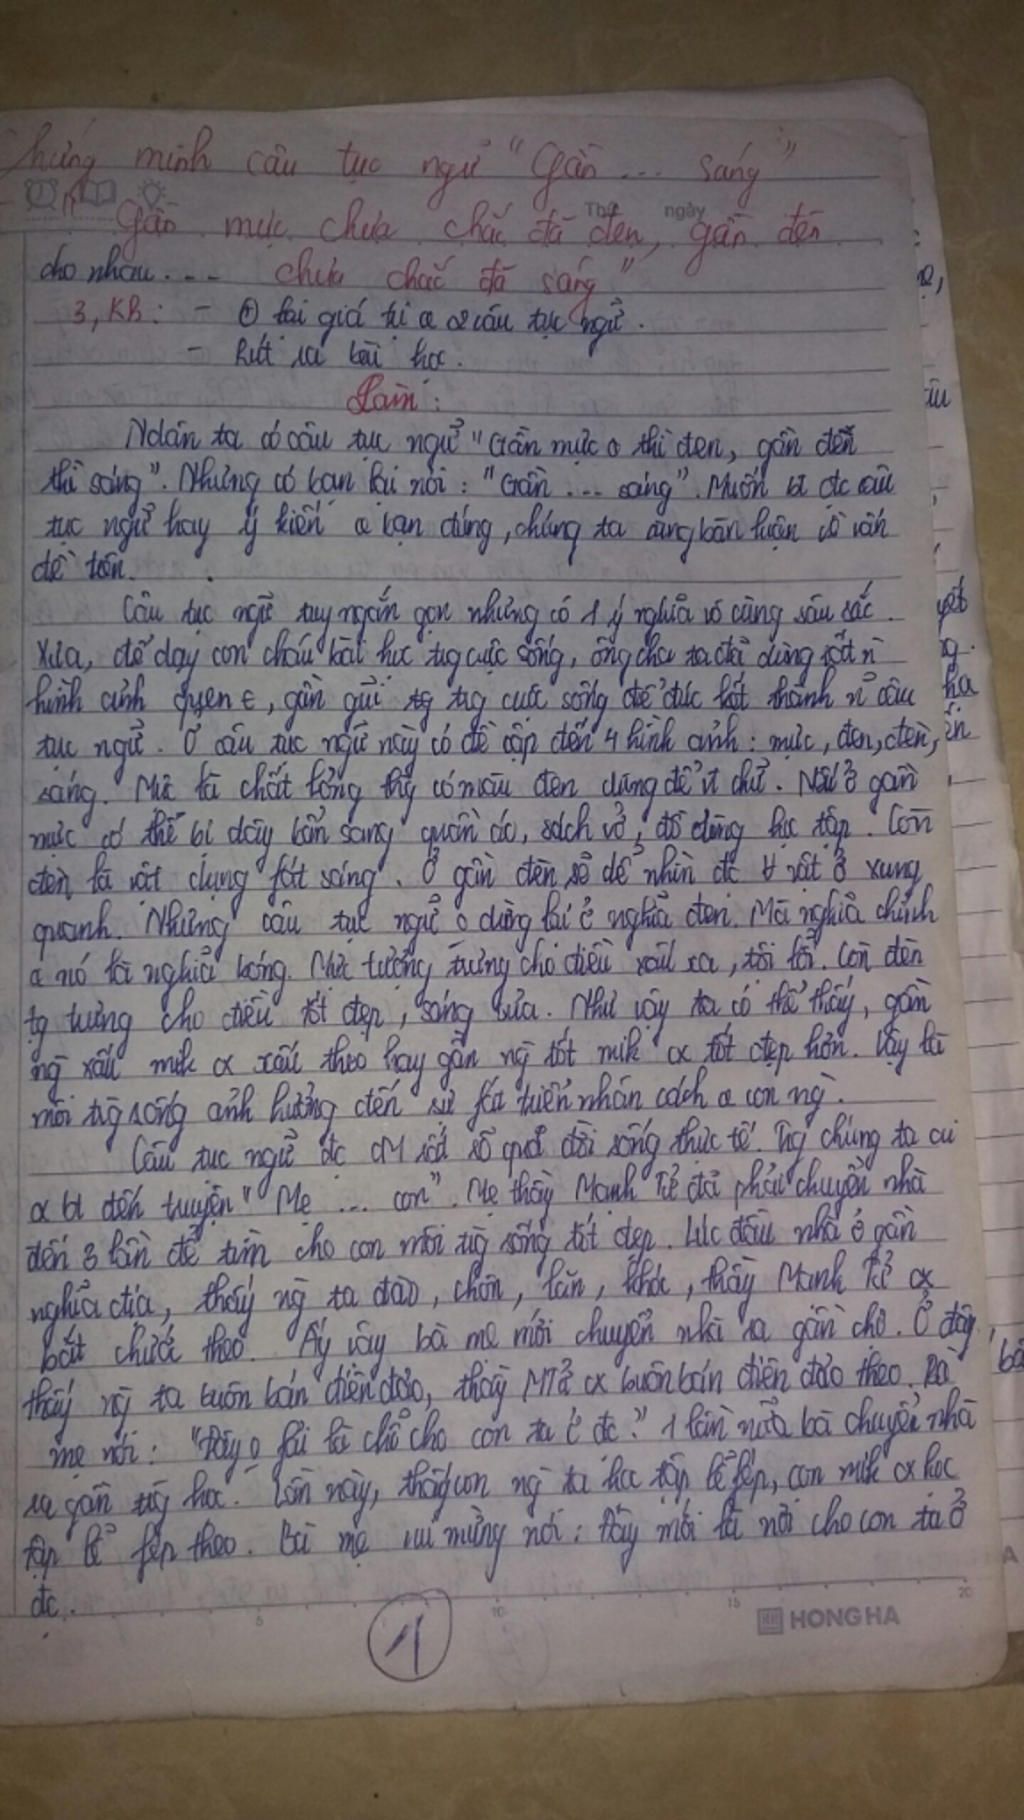 hứng minh câu tục ngữ "Gần ... sáng"
Thứ ngày
Gần mực chưa chắc đã đen, gần đèn
cho nhau... chưa chắc đã sáng"
3, KB: - lại giá trị câu tục ngữ.
- Rút ra bài học.
Làm:
Ndân ta có câu tục ngữ "Gần mực thì đen, gần đèn
thì sáng". Nhưng có bạn lại nói: "Gần ... sáng". Muốn bt đc câu
tục ngữ hay ý kiến a bạn đúng, chúng ta cùng bàn luận về vấn
đề trên.
Câu tục ngữ tuy ngắn gọn nhưng có 1 ý nghĩa vô cùng sâu sắc.
Xưa, để dạy con cháu bài học tzg cuộc sống, ông cha ta đã dùng rất n
hình ảnh quen €, gần gũi tzg cuộc sống để đúc kết thành n~ câu
tục ngữ. Ở câu tục ngữ này có đề cập đến 4 hình ảnh: mực, đen, đèn,
sáng. Mực là chất lỏng có màu đen dùng để chữ. Nếu ở gần
mực có thể bị dây bẩn sang quần áo, sách vở, đồ dùng học tập. Còn
đèn là vật dụng fát sáng. Ở gần đèn sẽ dễ nhìn đc ∀ vật ở xung
quanh. Nhưng câu tục ngữ o dừng lại ở nghĩa đen. Mà nghĩa chính
a nó là nghĩa bóng. Mực tượng trưng cho điều xấu xa, tội lỗi. Còn đèn
tg trưng cho điều tốt đẹp, sáng sủa. Như vậy ta có thể thấy, gần
ng xấu mik α xấu theo hay gần ng tốt mik α tốt đẹp hơn. Vậy là
môi tzg sống ảnh hưởng đến sự fát triển nhân cách a con ng.
Câu tục ngữ đc CM rất rõ qua đời sống thực tế. Tzg chúng ta ai
α bt đến truyện "Mẹ ... con". Mẹ thầy Mạnh Tử đã phải chuyển nhà
đến 3 lần để tìm cho con môi tzg sống tốt đẹp. Lúc đầu nhà ở gần
nghĩa địa, thấy ng ta đào, chôn, lăn, khóc, thầy Mạnh Tử α
bắt chước theo. Ấy vậy bà mẹ mới chuyển nhà ra gần chợ. Ở đây,
thấy ng ta buôn bán điên đảo, thầy MTử α buôn bán điên đảo theo. Bà
mẹ nói: "Đây o fải là chỗ cho con ta ở đc." 1 lần nữa bà chuyển nhà
ra gần tzg học. Lần này, thấy con ng ta học tập lễ fép, con mik α học
tập lễ fép theo. Bà mẹ vui mừng nói: Đây mới là nơi cho con ta ở
đc.
1
5 10 15 20
HONG HA